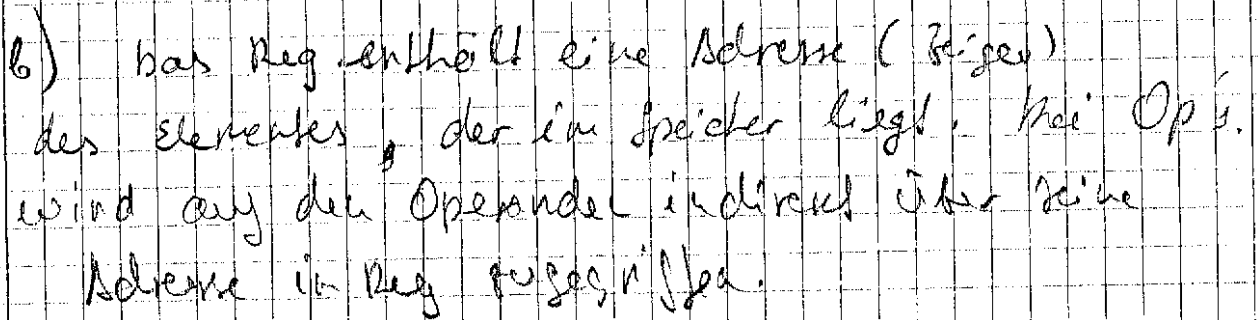 b) Das Reg. enthält eine Adresse (Zeiger)
des Elementes, der im Speicher liegt. Bei Op's.
wird auf den Operanden indirekt über seine
Adresse in Reg zugegriffen.